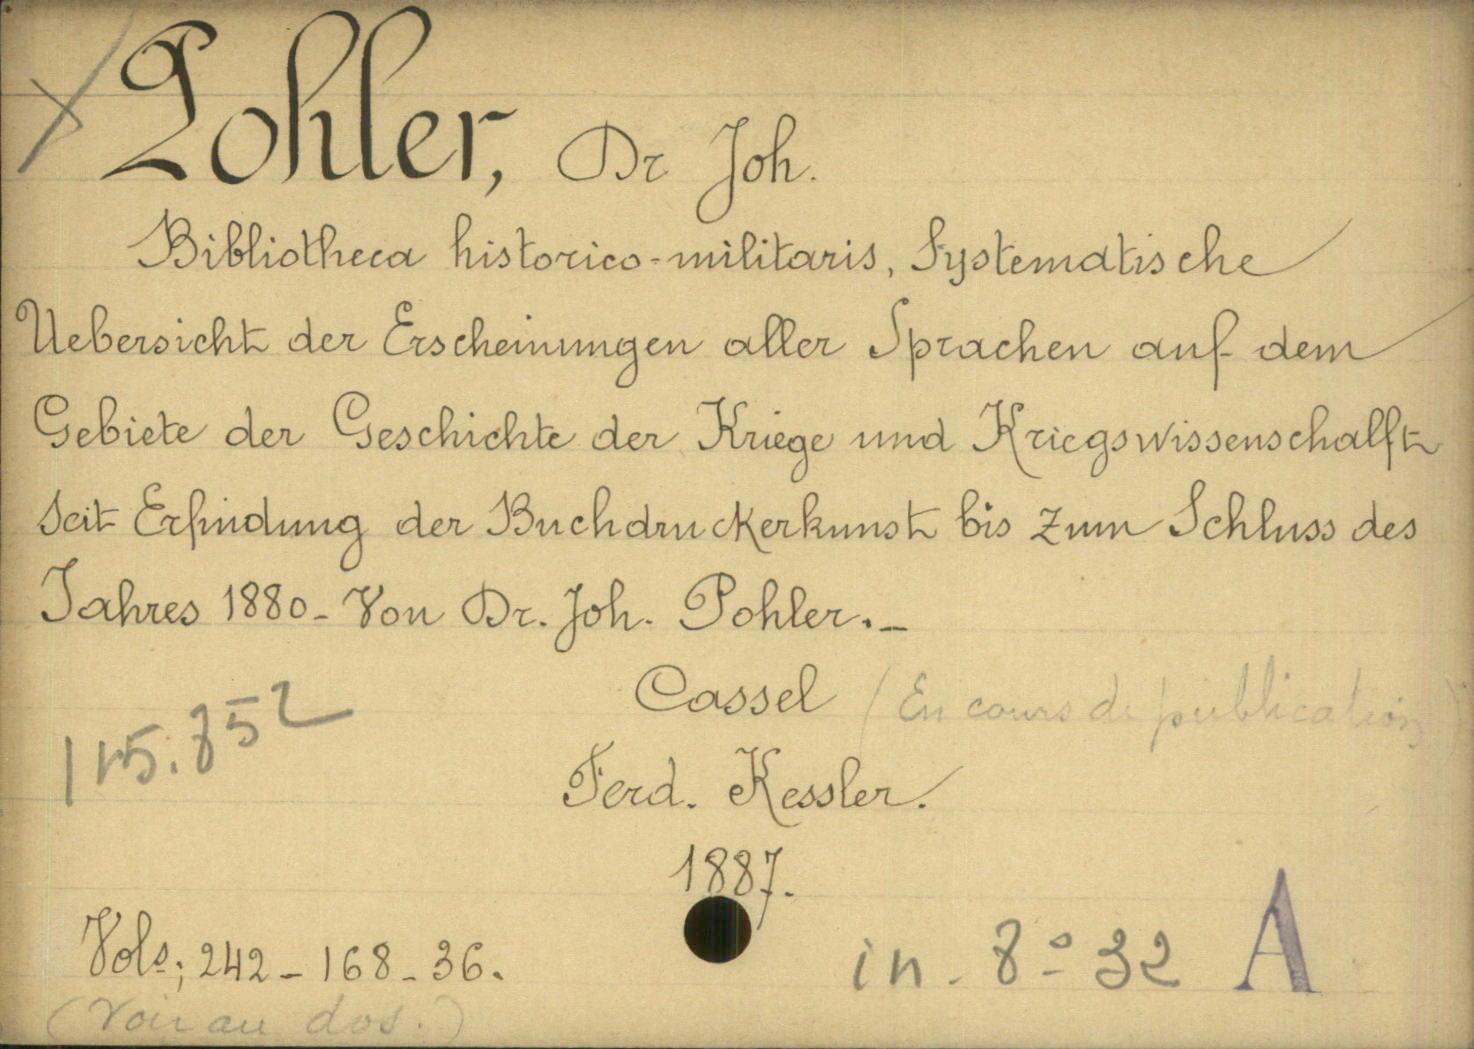 Pohler, Dr Joh.
Bibliotheca historico-militaris, Systematische
Uebersicht der Erscheinungen aller Sprachen auf dem
Gebiete der Geschichte der Kriege und Kriegswissenschalft
seit Erfindung der Buchdruckerkunst bis zum Schluss des
Jahres 1880 - Von Dr. Joh. Pohler. _
Cassel (En cours de publication)
115.852
Ferd. Kessler.
1887.
Vols; 242 - 168 - 36.
in - 8º 32 A
(Voir au dos.)